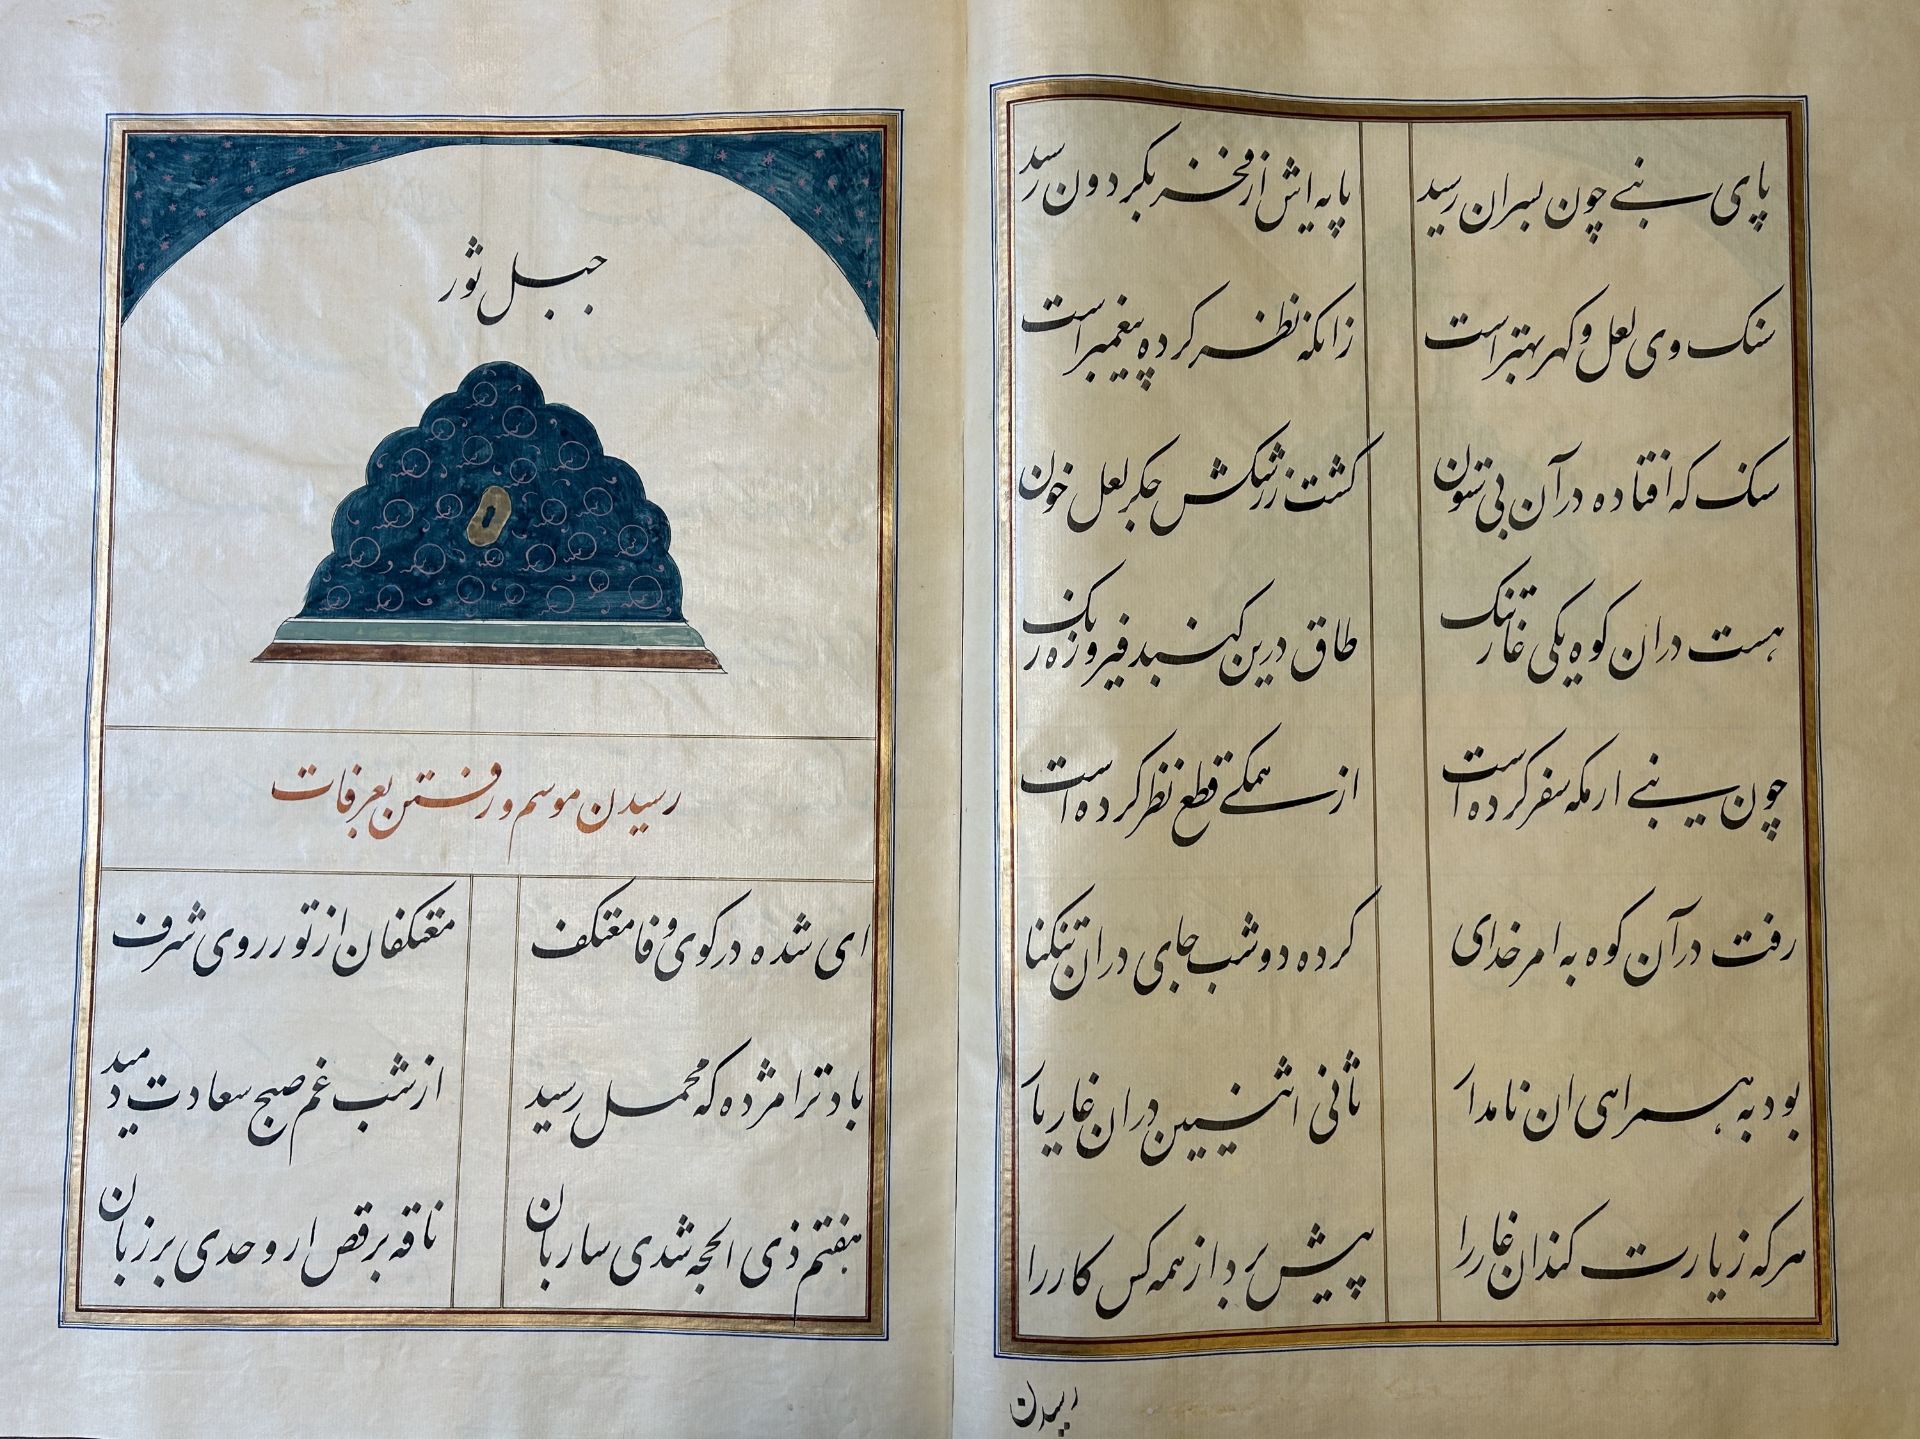 پای نبی چون بسران رسید پایه اش از مفخر بکردون رسید
سنک وی لعل و کهر بهتر است زانکه نظر کرده پیغمبر است
سنک که افتاده در آن بی ستون کشت ز رشکش جکر لعل خون
هست دران کوه یکی غار تنک طاق درین کنبد فیروزه رنک
چون نبی از مکه سفر کرده است از همکی قطع نظر کرده است
رفت در آن کوه به امر خدای کرده دو شب جای دران تنکنا
بود به همراهی ان نامدار ثانی اثنین دران غار یار
هر که زیارت کند ان غار را پیش برد از همه کس کار را
رسیدن
جبل ثور
رسیدن موسم و رفتن بعرفات
ای شده در کوی وفا معتکف معتکفان از تو رروی شرف
باد ترا مژده که محمل رسید از شب غم صبح سعادت دمید
هفتم ذی الحجه شدی ساربان ناقه برقص ار و حدی بر زبان